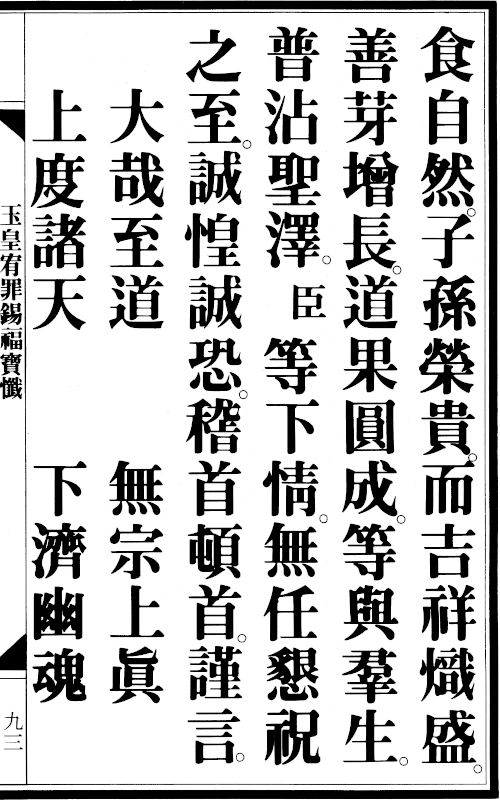 食自然。子孫榮貴。而吉祥熾盛。
善芽增長。道果圓成。等與羣生。
普沾聖澤。臣等下情。無任懇祝
之至。誠惶誠恐。稽首頓首。謹言。
大哉至道　無宗上眞
上度諸天　下濟幽魂
玉皇宥罪錫福寶懺
九三